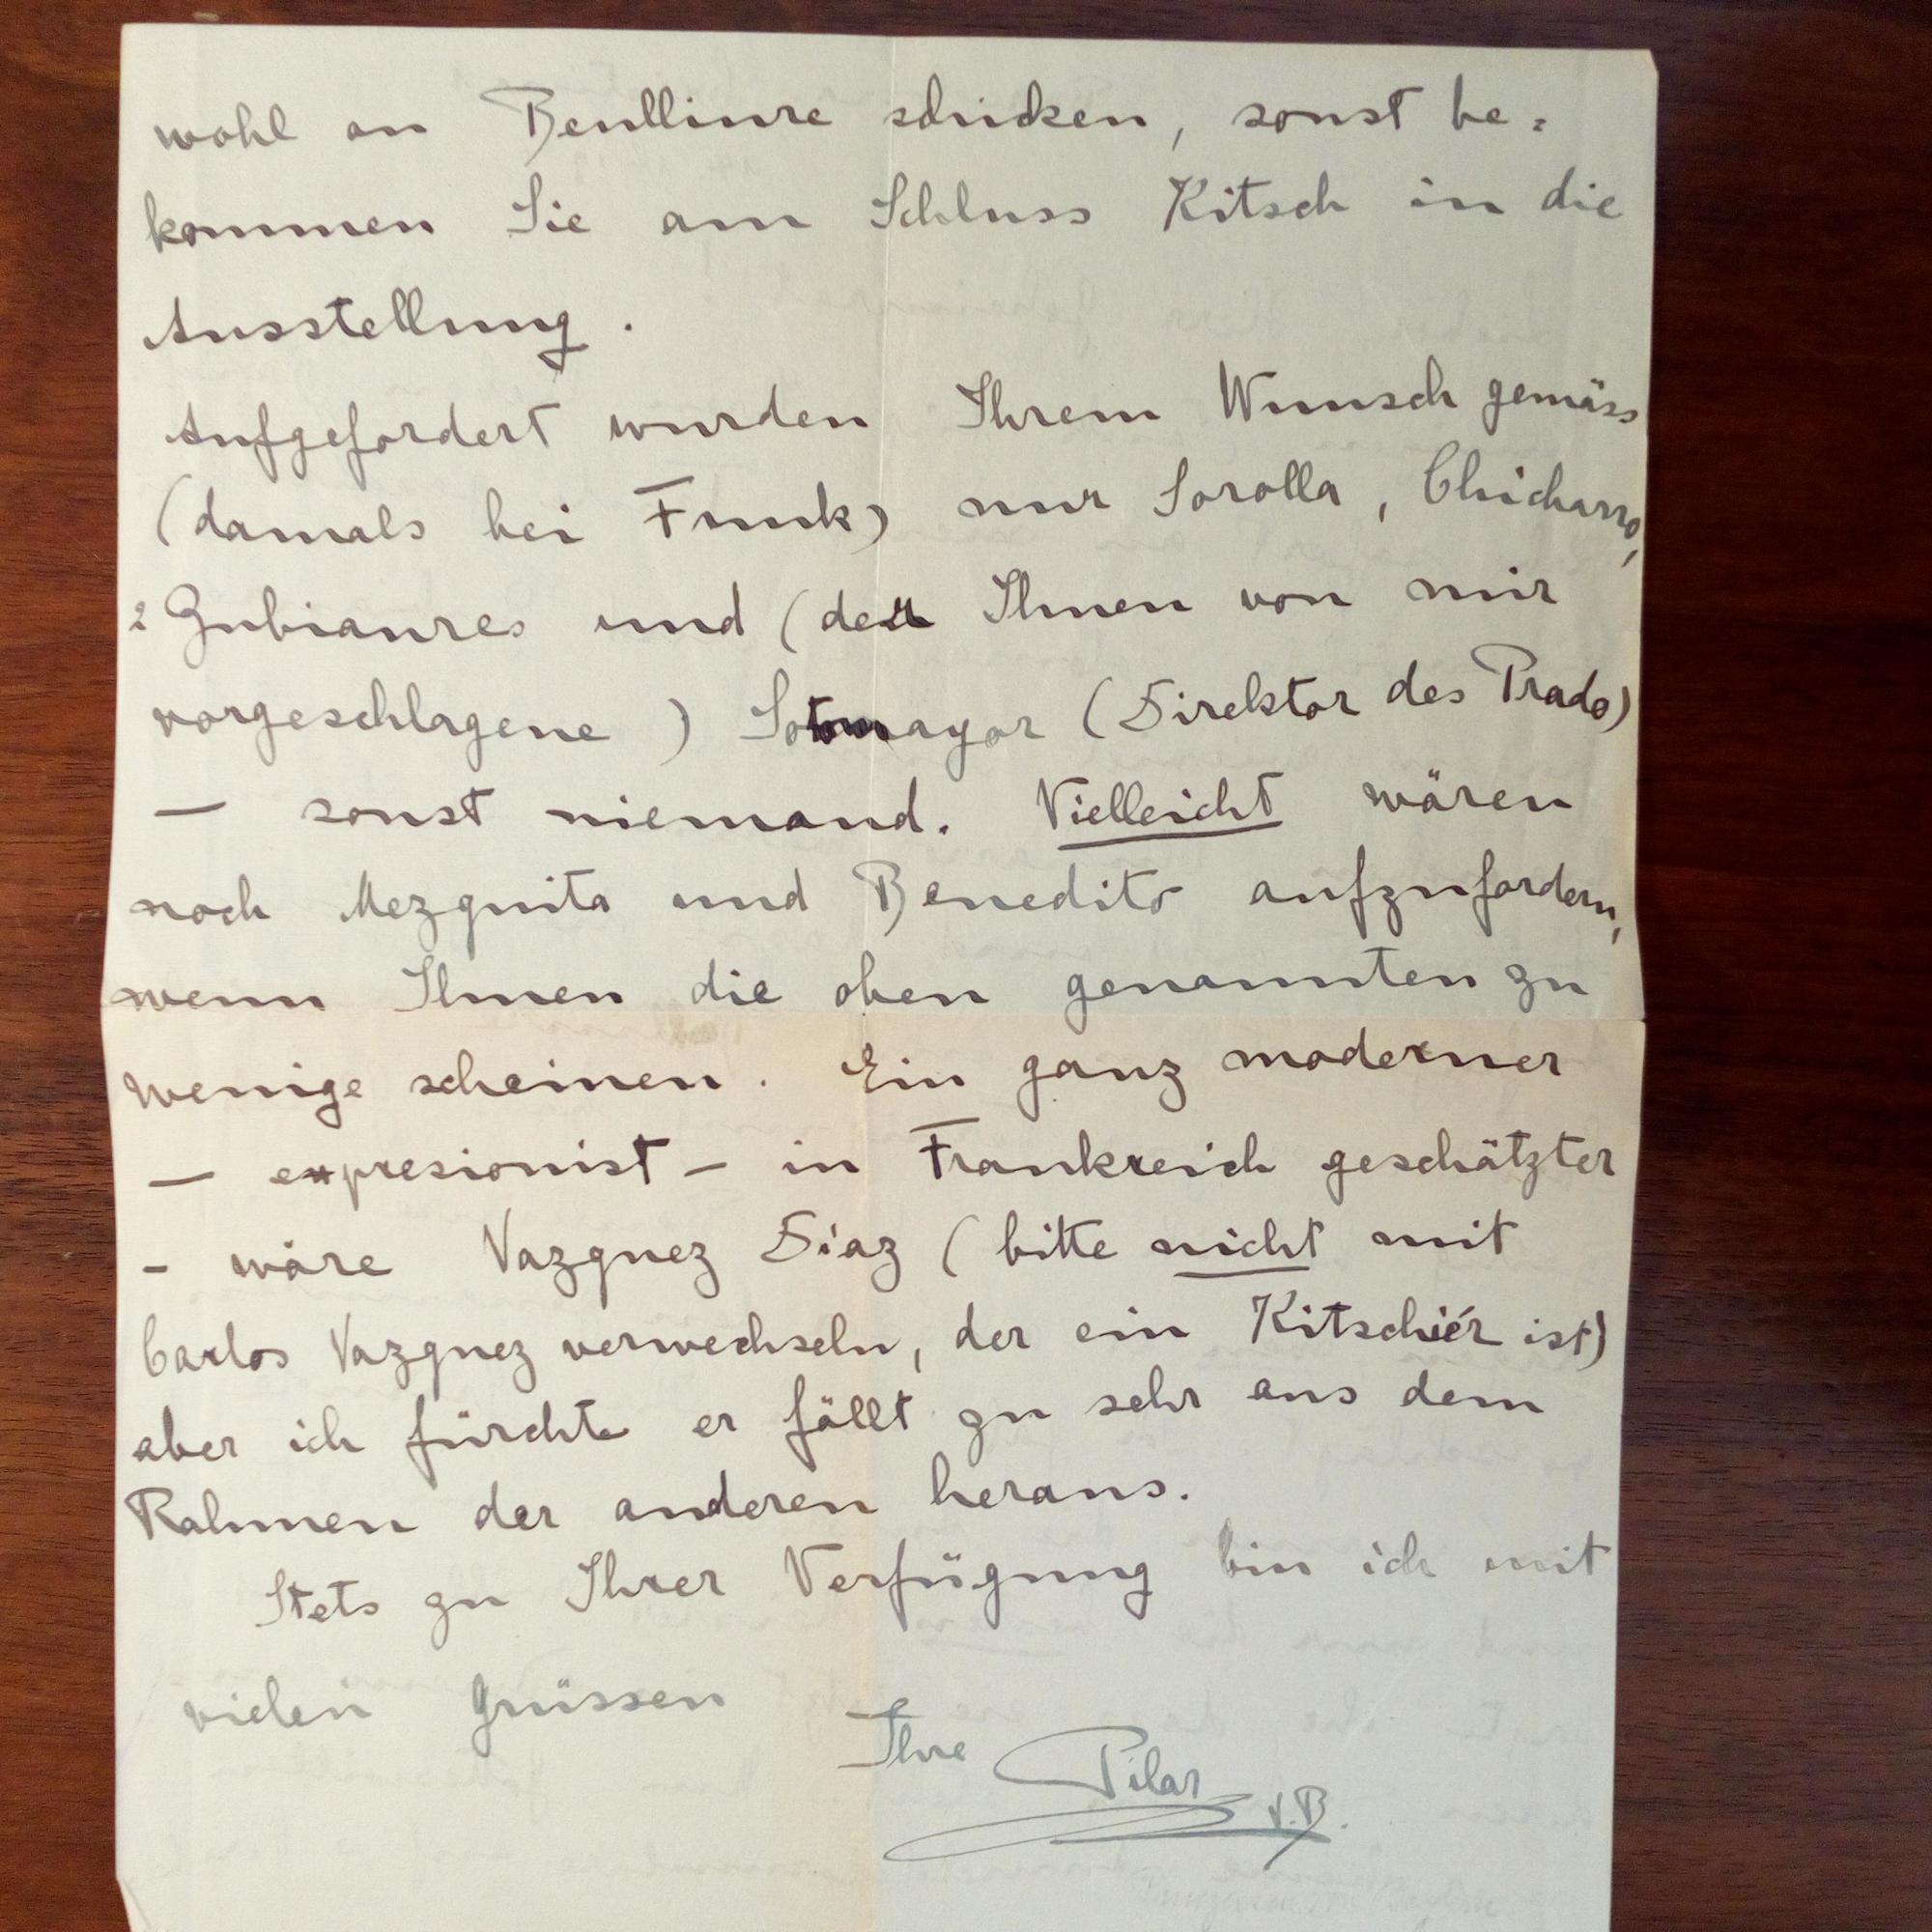 wohl an Benlliure schicken, sonst be=
kommen Sie am Schluss Kitsch in die
Ausstellung.
Aufgefordert wurden Ihrem Wunsch gemäss
(damals bei Funk) nur Sorolla, Chicharro,
2 Zubiaures und (der Ihnen von mir
vorgeschlagene) Sotomayor (Direktor des Prado)
— sonst niemand. Vielleicht wären
noch Mezquita und Benedito aufzufordern,
wenn Ihnen die oben genannten zu
wenige scheinen. Ein ganz moderner
— expresionist — in Frankreich geschätzter
- wäre Vazquez Diaz (bitte nicht mit
Carlos Vazquez verwechseln, der ein Kitschiér ist)
aber ich fürchte er fällt zu sehr aus dem
Rahmen der anderen heraus.
Stets zu Ihrer Verfügung bin ich mit
vielen Grüssen
Ihre Pilar
v. B.